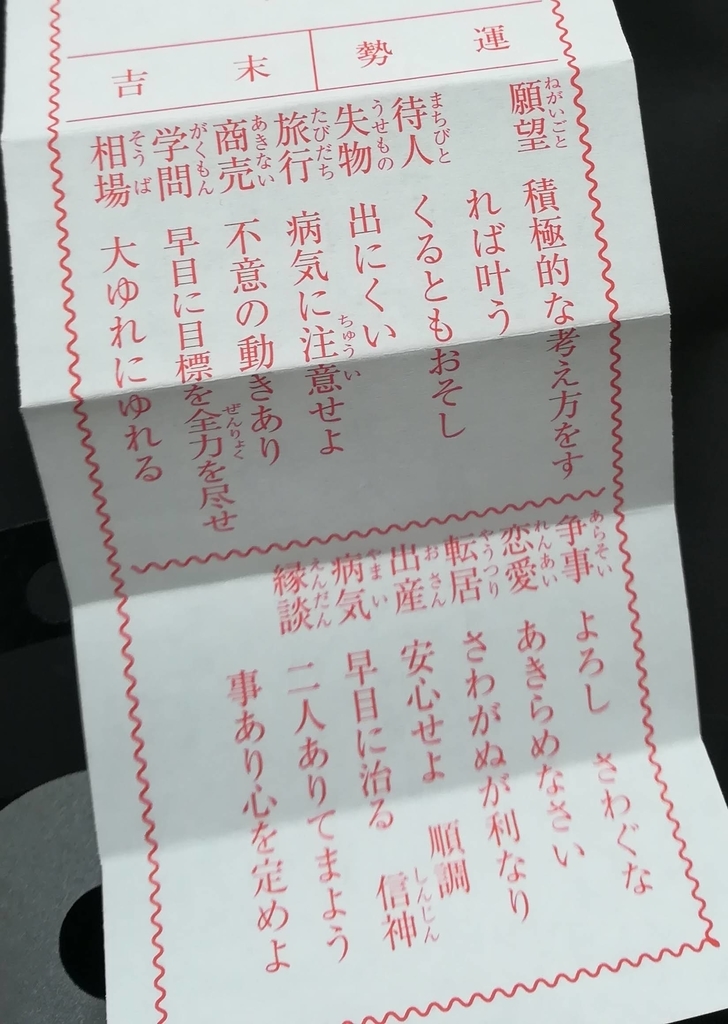 運勢 末吉
願望 積極的な考え方をす
れば叶う
待人 くるともおそし
失物 出にくい
旅行 病気に注意せよ
商売 不意の動きあり
学問 早目に目標を全力を尽せ
相場 大ゆれにゆれる
争事 よろし さわぐな
恋愛 あきらめなさい
転居 さわがぬが利なり
出産 安心せよ 順調
病気 早目に治る 信神
縁談 二人ありてまよう
事あり心を定めよ
ねがいごと
まちびと
うせもの
たびだち
ちゅうい
あきない
がくもん
ぜんりょく
そうば
あらそい
れんあい
やうつり
おさん
やまい
しんじん
えんだん